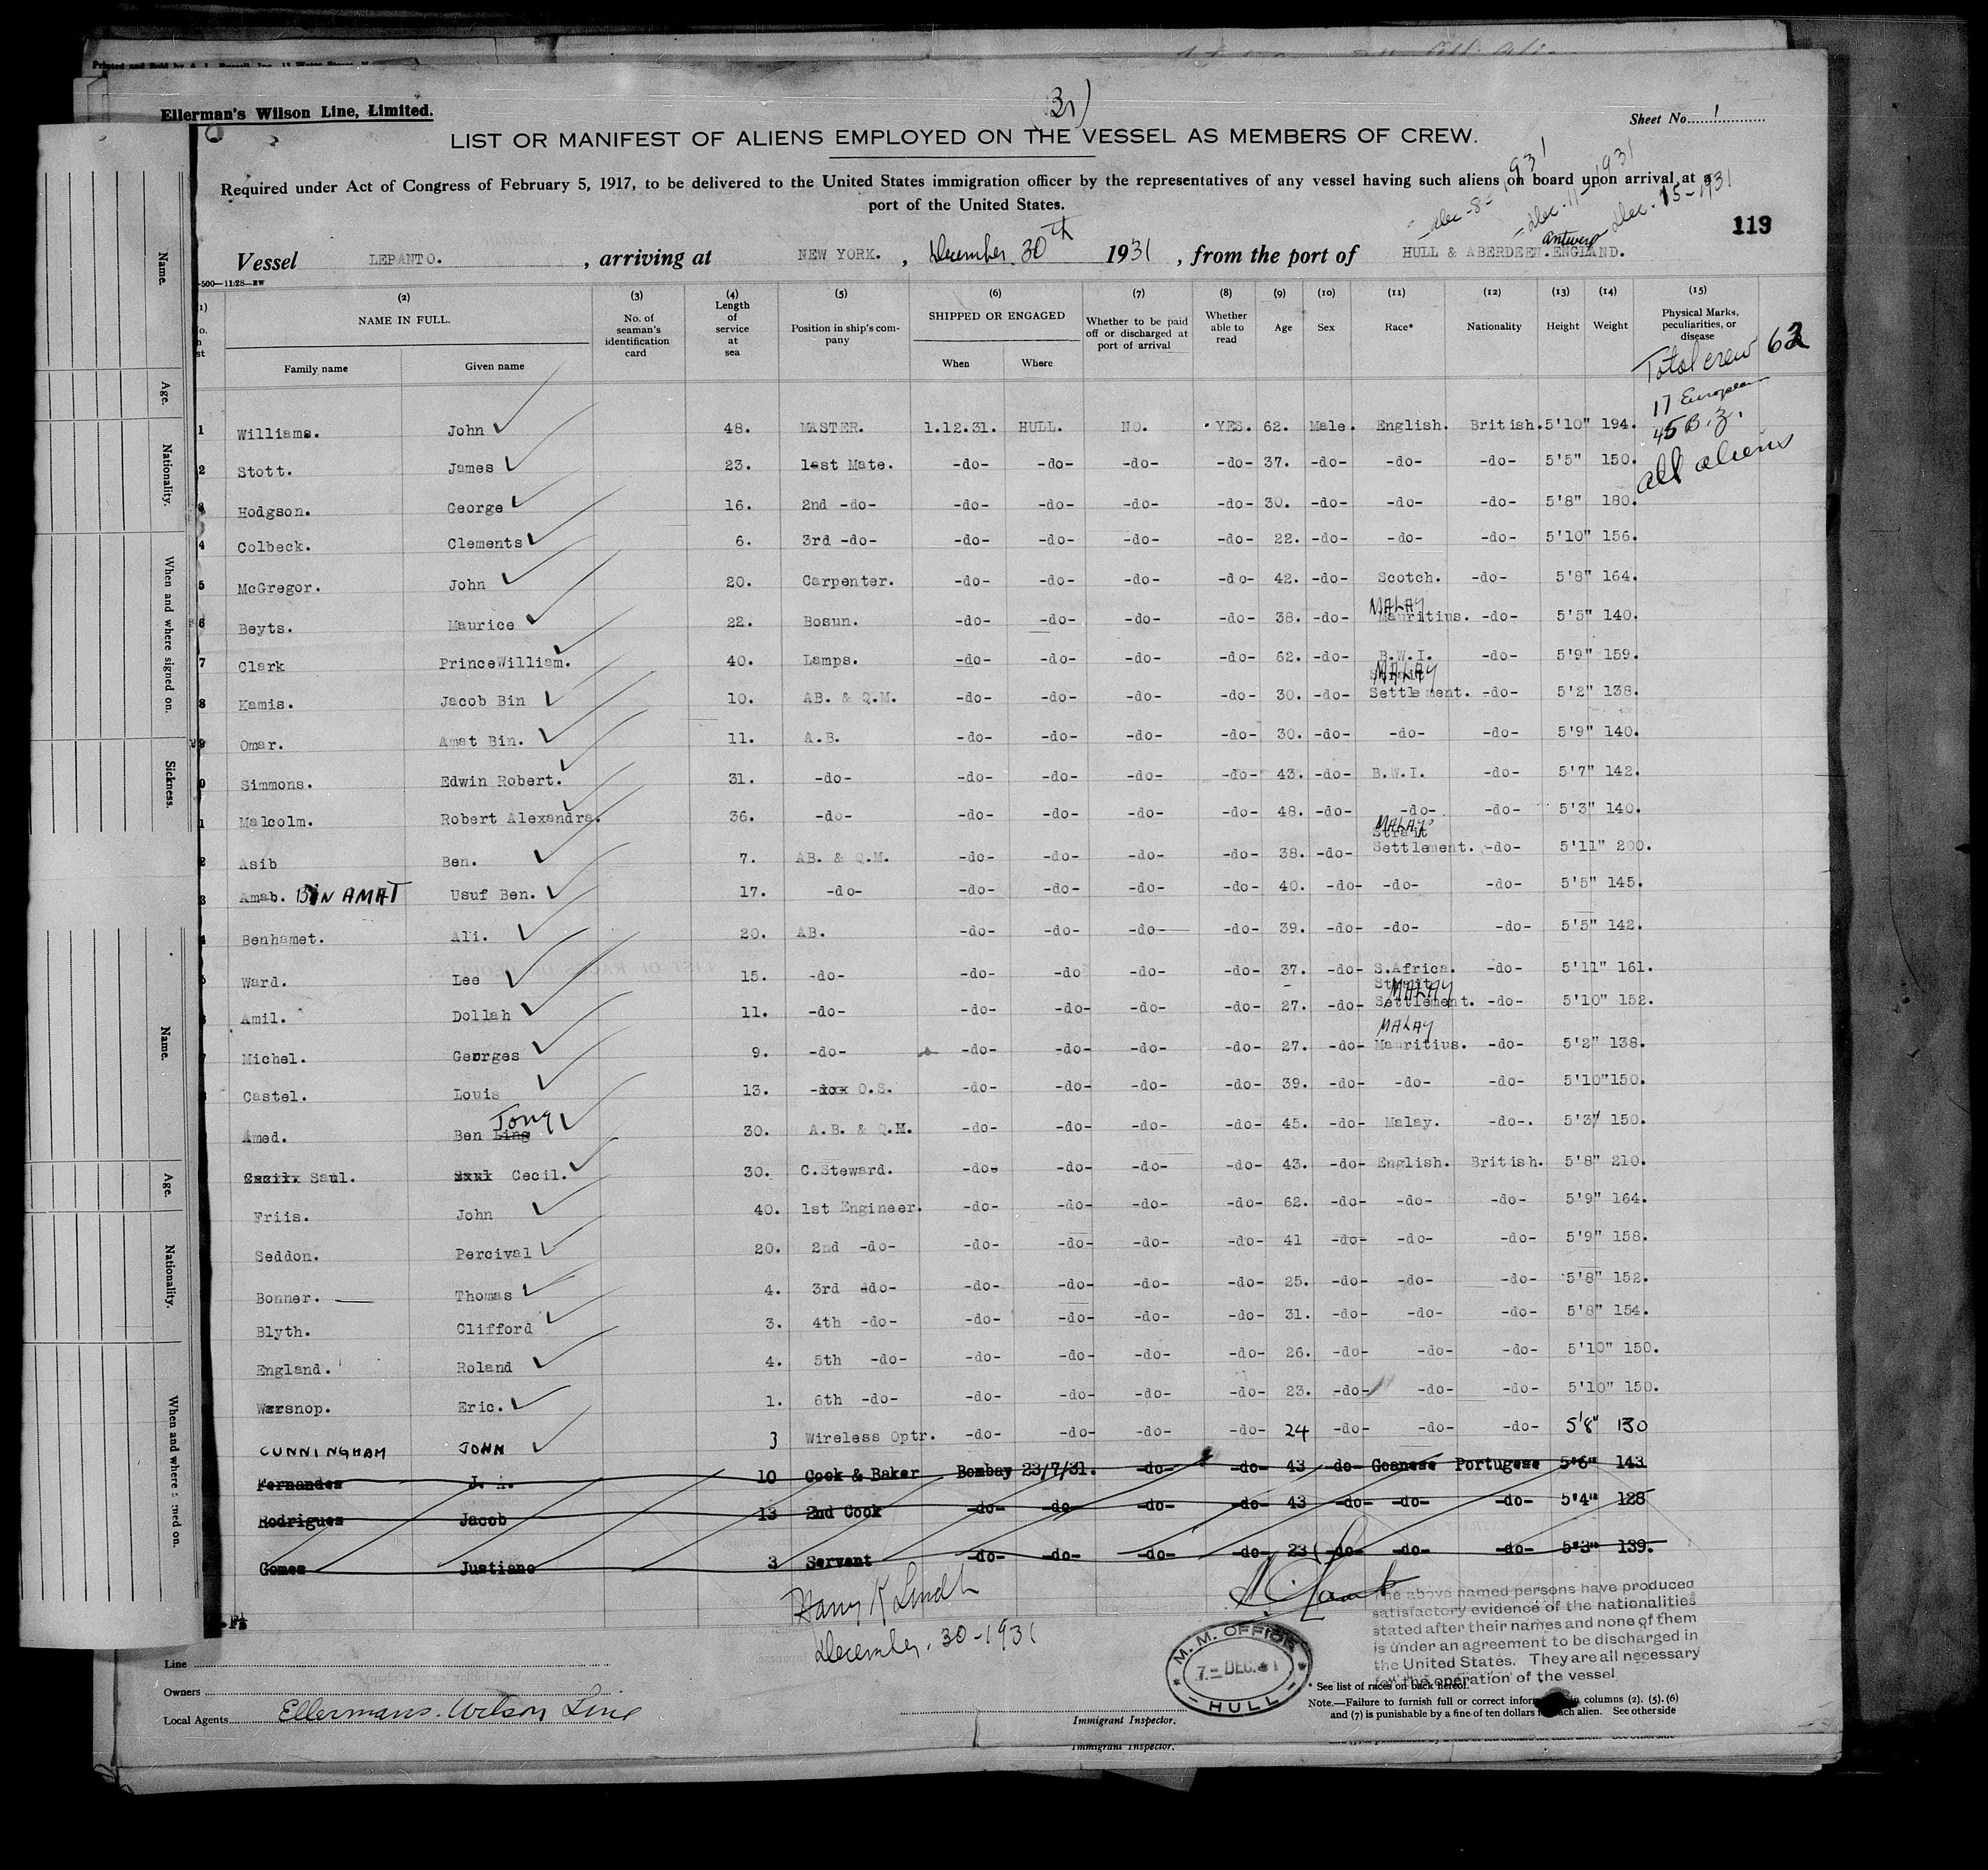 Ellerman's Wilson Line, Limited.
(31)
Sheet No. 1
LIST OR MANIFEST OF ALIENS EMPLOYED ON THE VESSEL AS MEMBERS OF CREW.
Required under Act of Congress of February 5, 1917, to be delivered to the United States immigration officer by the representatives of any vessel having such aliens on board upon arrival at a
port of the United States.
Dec-8-1931 Dec.11-1931 Dec.15-1931
119
Vessel LEPANTO. , arriving at NEW YORK. , December 30th 1931 , from the port of HULL & ABERDEEN. Antwerp ENGLAND.
500—11/28—
(2) NAME IN FULL. Family name Given name
(3) No. of seaman's identification card
(4) Length of service at sea
(5) Position in ship's company
(6) SHIPPED OR ENGAGED When Where
(7) Whether to be paid off or discharged at port of arrival
(8) Whether able to read
(9) Age
(10) Sex
(11) Race*
(12) Nationality
(13) Height
(14) Weight
(15) Physical Marks, peculiarities, or disease
Total crew 62
17 European
45 B.Z.
all aliens
1 Williams. John 48. MASTER. 1.12.31. HULL. NO. YES. 62. Male. English. British. 5'10" 194.
2 Stott. James 23. 1ast Mate. -do- -do- -do- -do- 37. -do- -do- -do- 5'5" 150.
3 Hodgson. George 16. 2nd -do- -do- -do- -do- -do- 30. -do- -do- -do- 5'8" 180.
4 Colbeck. Clements 6. 3rd -do- -do- -do- -do- -do- 22. -do- -do- -do- 5'10" 156.
5 McGregor. John 20. Carpenter. -do- -do- -do- -do- 42. -do- Scotch. -do- 5'8" 164.
6 Beyts. Maurice 22. Bosun. -do- -do- -do- -do- 38. -do- MALAY Mauritius. -do- 5'5" 140.
7 Clark PrinceWilliam. 40. Lamps. -do- -do- -do- -do- 62. -do- B.W.I. -do- 5'9" 159.
8 Kamis. Jacob Bin 10. AB. & Q.M. -do- -do- -do- -do- 30. -do- Strait MALAY Settlement. -do- 5'2" 138.
9 Omar. Amat Bin. 11. A.B. -do- -do- -do- -do- 30. -do- -do- -do- 5'9" 140.
0 Simmons. Edwin Robert. 31. -do- -do- -do- -do- -do- 43. -do- B.W.I. -do- 5'7" 142.
1 Malcolm. Robert Alexandra. 36. -do- -do- -do- -do- -do- 48. -do- -do- -do- 5'3" 140.
2 Asib Ben. 7. AB. & Q.M. -do- -do- -do- -do- 38. -do- MALAY Strait Settlement. -do- 5'11" 200.
3 Amab. BIN AMAT Usuf Ben. 17. -do- -do- -do- -do- -do- 40. -do- -do- -do- 5'5" 145.
4 Benhamet. Ali. 20. AB. -do- -do- -do- -do- 39. -do- -do- -do- 5'5" 142.
5 Ward. Lee 15. -do- -do- -do -do- -do- 37. -do- S.Africa. -do- 5'11" 161.
6 Amil. Dollah 11. -do- -do- -do- -do- -do- 27. -do- Strait MALAY Settlement. -do- 5'10" 152.
7 Michel. Georges 9. -do- -do- -do- -do- -do- 27. -do- MALAY Mauritius. -do- 5'2" 138.
Castel. Louis 13. O.S. -do- -do- -do- -do- 39. -do- -do- -do- 5'10" 150.
Amed. Ben Ling Tong 30. A.B. & Q.M. -do- -do- -do- -do- 45. -do- Malay. -do-. 5'3" 150.
Saul. Cecil. 30. C.Steward. -do- -do- -do- -do- 43. -do- English. British. 5'8" 210.
Friis. John 40. 1st Engineer. -do- -do- -do- -do- 62. -do- -do- -do- 5'9" 164.
Seddon. Percival 20. 2nd -do- -do- -do- -do- -do- 41 -do- -do- -do- 5'9" 158.
Bonner. Thomas 4. 3rd -do- -do- -do- -do- -do- 25. -do- -do- -do- 5'8" 152.
Blyth. Clifford 3. 4th -do- -do- -do- -do- -do- 31. -do- -do- -do- 5'8" 154.
England. Roland 4. 5th -do- -do- -do- -do- -do- 26. -do- -do- -do- 5'10" 150.
Warsnop. Eric. 1. 6th -do- -do- -do- -do- -do- 23. -do- -do- -do- 5'10" 150.
CUNNINGHAM JOHN 3 Wireless Optr. -do- -do- -do- -do- 24 -do- -do- -do- 5'8" 130
Fernandes J. 10 Cook & Baker Bombay 23/7/31. -do- -do- 43 -do- Goanese Portugese 5'6" 143
Rodrigues Jacob 13 2nd Cook -do- -do- -do- -do- 43 -do- -do- -do- 5'4" 128
Gomes Justiano 3 Servant -do- -do- -do- -do- 23 -do- -do- -do- 5'3" 139.
Harry K Lindt
December. 30-1931
The above named persons have produced
satisfactory evidence of the nationalities
stated after their names and none of them
is under an agreement to be discharged in
the United States. They are all necessary
for the operation of the vessel
M. M. OFFICE
7 - DEC. 31
HULL
Line
Owners
Local Agents Ellermans. Wilson Line
Immigrant Inspector.
* See list of races on back hereof.
Note.—Failure to furnish full or correct information in columns (2). (5). (6)
and (7) is punishable by a fine of ten dollars for each alien. See other side
Immigrant Inspector.
Name.
Age.
Nationality.
When and where signed on.
Sickness.
Name.
Age.
Nationality.
When and where signed on.